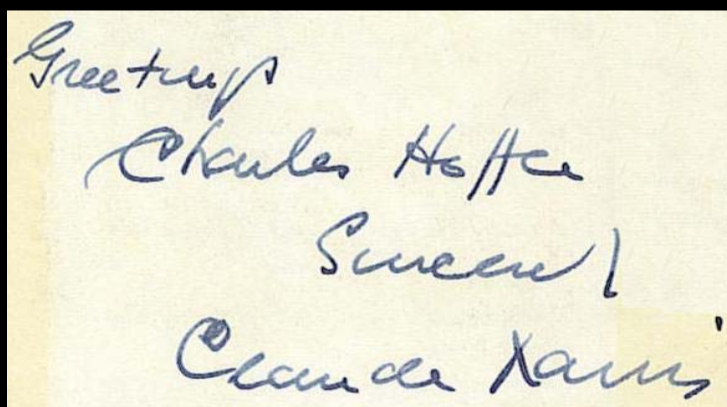 Greetings
Charles Hoffee
Sincerely
Claude Rains